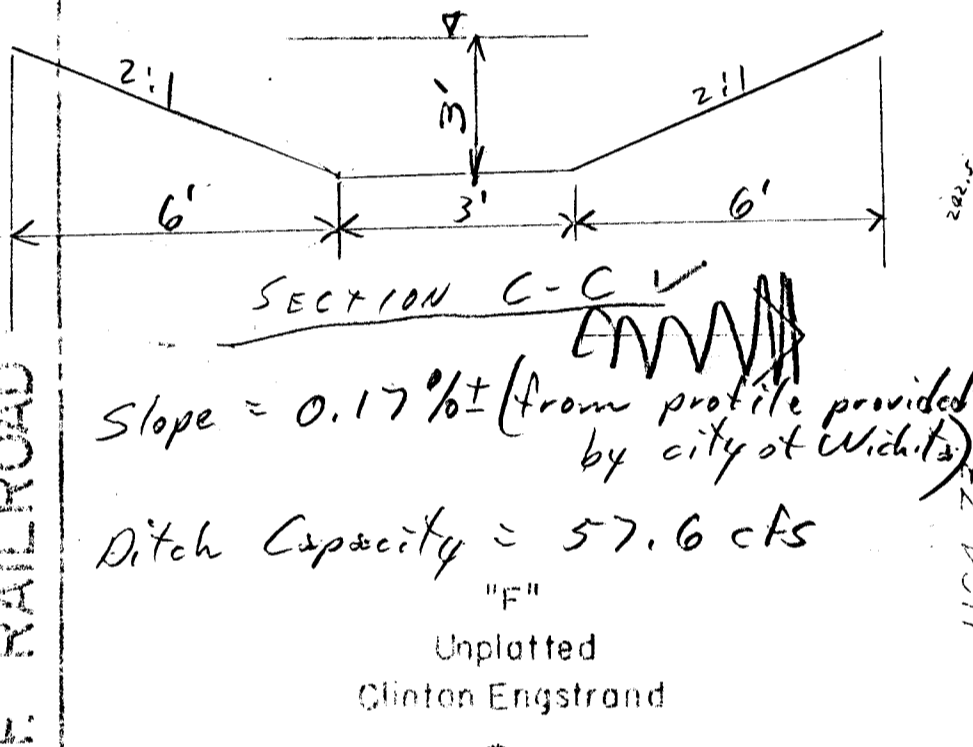 2:1
3'
2:1
6'
3'
6'
202.5
SECTION C-C
Slope = 0.17%± (from profile provided
by city of Wichita)
Ditch Capacity = 57.6 cfs
"F"
Unplatted
Clinton Engstrand
F. RAILROAD